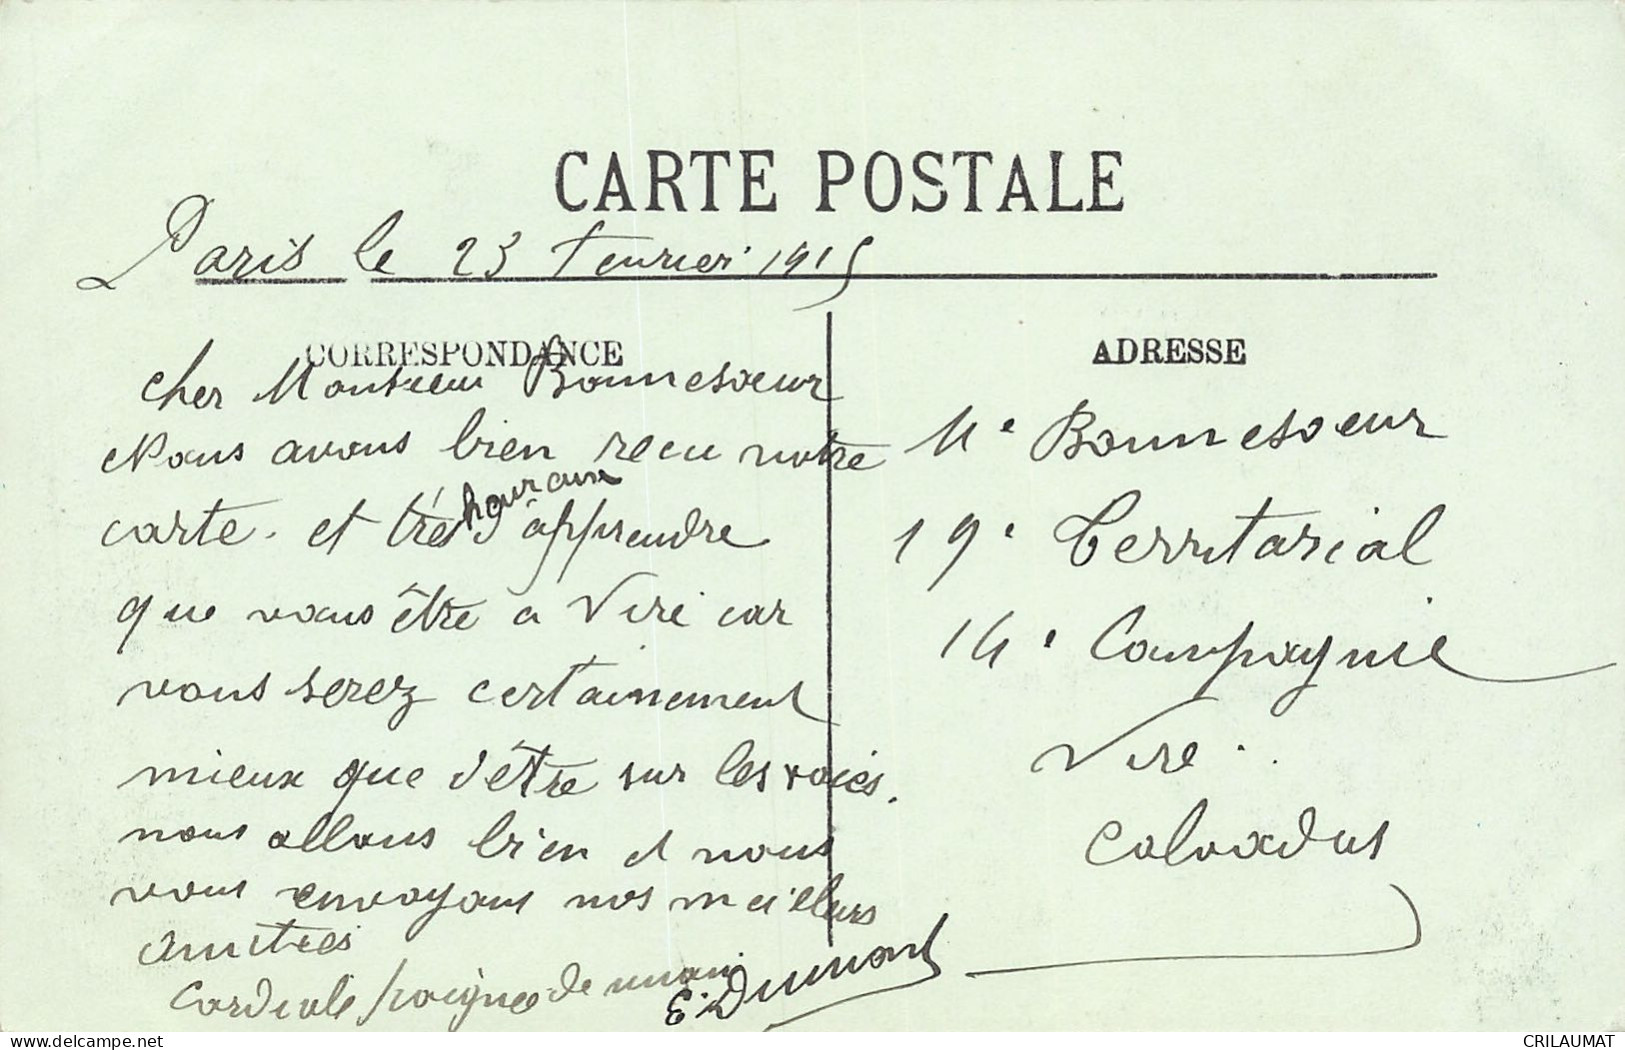 CARTE POSTALE
Paris le 23 fevrier 1915
CORRESPONDANCE
Cher Monsieur Bonnesoeur
Nous avons bien recu notre
carte. et très houraux d'apprendre
que vous être a Vire car
vous serez certainement
mieux que d'être sur les voies.
nous allons bien et nous
vous envoyons nos meilleurs
amitiés
Cordiale poignée de main
E. Dumont
ADRESSE
Mr Bonnesoeur
19e Territorial
14e Compagnie
Vire.
Calvados
delcampe.net
CRILAUMAT